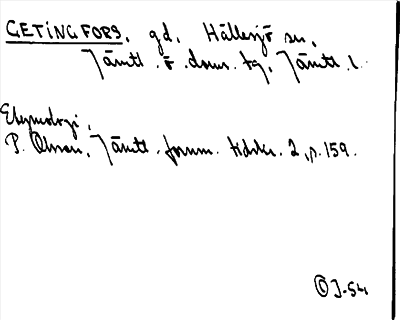 GETINGFORS, gd, Hällesjö sn,
Jämtl. ö. doms. tg, Jämtl. l.
Etymologi,
P. Olsson, Jämtl. fornm. tidskr. 2, p. 159.